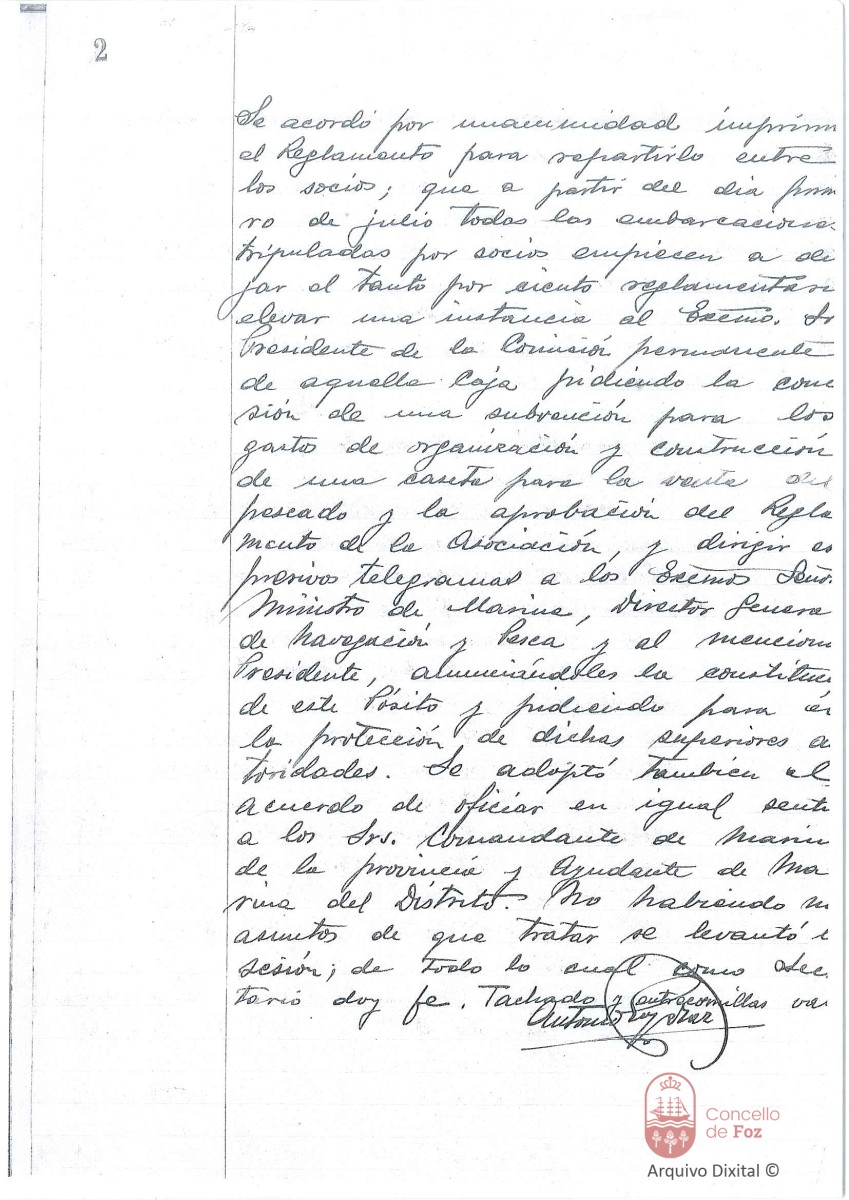 2
Se acordó por unanimidad imprim
el Reglamento para repartirlo entre
los socios; que a partir del dia prim
ro de julio todas las embarcacione
tripuladas por socios empiecen a de
jar el tanto por ciento reglamentari
elevar una instancia al Excmo. Sr
Presidente de la Comisión permanente
de aquella Caja pidiendo la conce
sión de una subvención para los
gastos de organización y construcción
de una caseta para la venta del
pescado y la aprobación del Regla
mento de la Asociación, y dirigir ex
presivos telegramas a los Excmos Seño
Ministro de Marina, Director Genera
de Navegación y Pesca y al mencion
Presidente, anunciándoles la constitu
de este Pósito y pidiendo para él
la protección de dichas superiores a
toridades. Se adoptó tambien el
acuerdo de oficiar en igual senti
a los Srs. Comandante de Marin
de la provincia y Ayudante de Ma
rina del Distrito. No habiendo m
asuntos de que tratar se levantó l
sesión; de todo lo cual como Sec
tario doy fe. Tachado y entrecomillas va
Antonio
Concello
de Foz
Arquivo Dixital ©